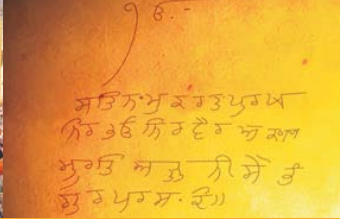 ੧ੳ.-
ਸਤਿਨਾਮੁ ਕਰਤਾਪੁਰਖ
ਨਿਰਭਉ ਨਿਰਵੈਰ ਅਕਾਲ
ਮੂਰਤਿ ਅਜੂਨੀ ਸੈਭੰ
ਗੁਰਪ੍ਰਸਾਦਿ॥